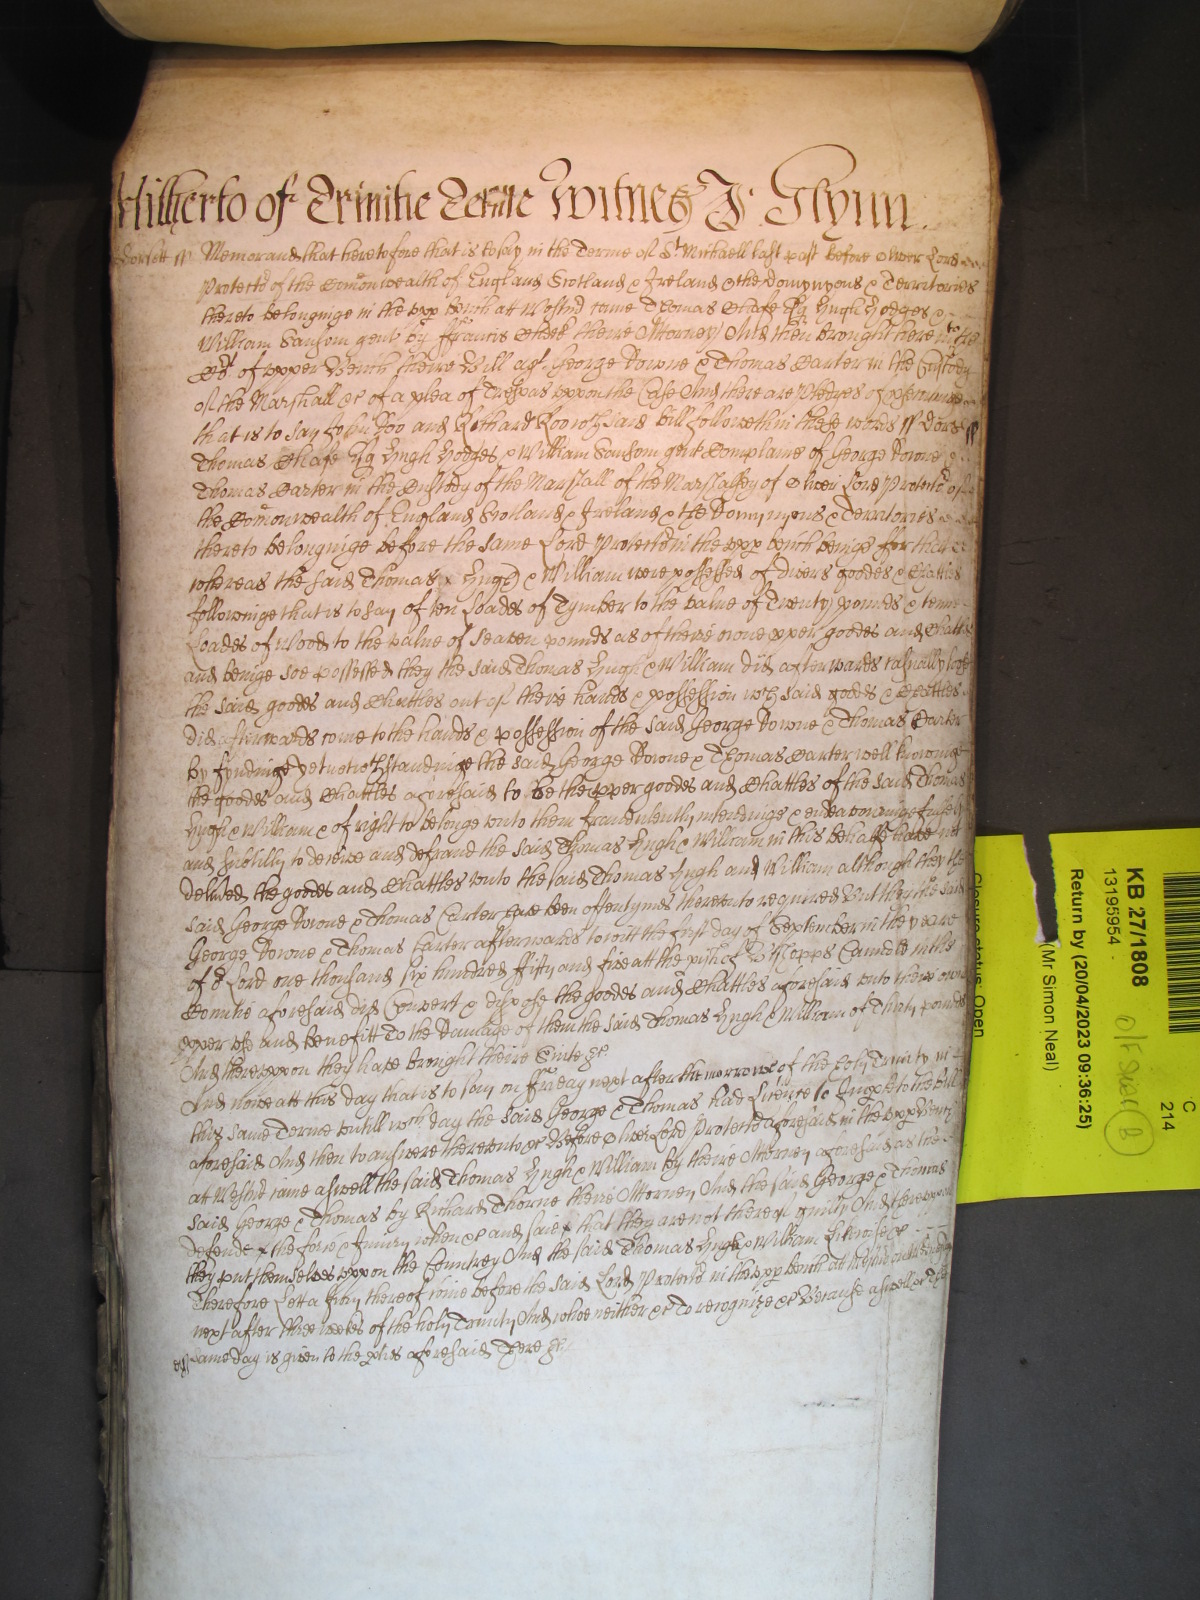 Hitherto of Trinitie Terme Witnes J. Glynn.
Dorsett ss Memorand that heretofore that is to say in the Terme of St Michaell last past before Oliver Lord
Protector of the Comonwealth of England Scotland & Ireland & the Domynyons & Territories
thereto belonginge in the upp bench at Westmr came Thomas Chafe Esq Hugh Hodges &
William Sansom gent by ffrancis theire Attorney And then brought here into the
Ct of upper Bench theire Bill agt George Bowne & Thomas Carter in the Custody
of the Marshall &c of a plea of Trespas uppon the Case And there are Pledges of
that is to say John Doo and Richard Roo wch said bill followeth in these words ss Dorsett ss
Thomas Chafe Esq Hugh Hodges & William Sansom gent Complaine of George Bowne &
Thomas Carter in the Custody of the Marshall of the Marshalsey of Oliver Lord Protector of
the Comonwealth of England Scotland & Ireland & the Domynyons & Territories
thereto belonginge before the same Lord Protector in the upp bench beinge for that
whereas the said Thomas Hugh & William were possessed of divers goodes & Chattles
followinge that is to say of ten Loades of Tymber to the value of Twenty pounds & tenne
Loades of Wood to the value of Seaven pounds as of theire owne pper goodes and Chattles
and beinge soe possessed they the said Thomas Hugh & William did afterwards casually loose
the said goodes and Chattles out of theire hands & possession wch said goods & Chattles
did afterwards come to the hands & possession of the said George Bowne & Thomas Carter
by fyndinge yet notwthstandinge the said George Bowne & Thomas Carter well knowing
the goodes and Chattles aforesaid to be the pper goodes and Chattles of the said Thomas
Hugh & William & of right to belonge unto them fraudulently intendinge & endeavouringe
and subtilly to deceive and defraud the said Thomas Hugh & William in this behalfe have not
delived the goodes and Chattles unto the said Thomas Hugh and William although they the
said George Bowne & Thomas Carter have been oftentymes thereunto required But they the said
George Bowne & Thomas Carter afterwards to witt the first day of September in the yeare
of or Lord one thousand six hundred ffifty and five at the pish of Bishopps Caundle in the
Countie aforesaid did Convert & dispose the goodes and Chattles aforesaid unto their owne
pper use and benefitt To the Damage of them the said Thomas Hugh & William of Thirty pounds
And thereuppon they have brought theire Suite &c
And nowe att this day that is to say on ffriday next after the morrow of the holy Trinity in
this same Terme untill wch day the said George & Thomas had Licence to Imple to the bill
aforesaid And then to answere thereunto &c Before Oliver Lord Protector aforesaid in the upp Bench
at Westmr came aswell the said Thomas Hugh & William by theire Attorney aforesaid as the
said George & Thomas by Richard Thorne theire Attorney And the said George & Thomas
defende the force & Iniury when &c and saie that they are not thereof guilty And thereuppon
they put themselves uppon the Countrey And the said Thomas Hugh & William likewise &c
Therefore Lett a Jury thereof come before the said Lord Protector in the upp bench at Westmr on
next after three weekes of the holy Trinity And whoe neither &c To recognize &c Because aswell &c The
same day is given to the pties aforesaid There &c
KB 27/1808
13195954
Return by (20/04/2023 09:36:25)
(Mr Simon Neal)
Closure status: Open
C
214
B